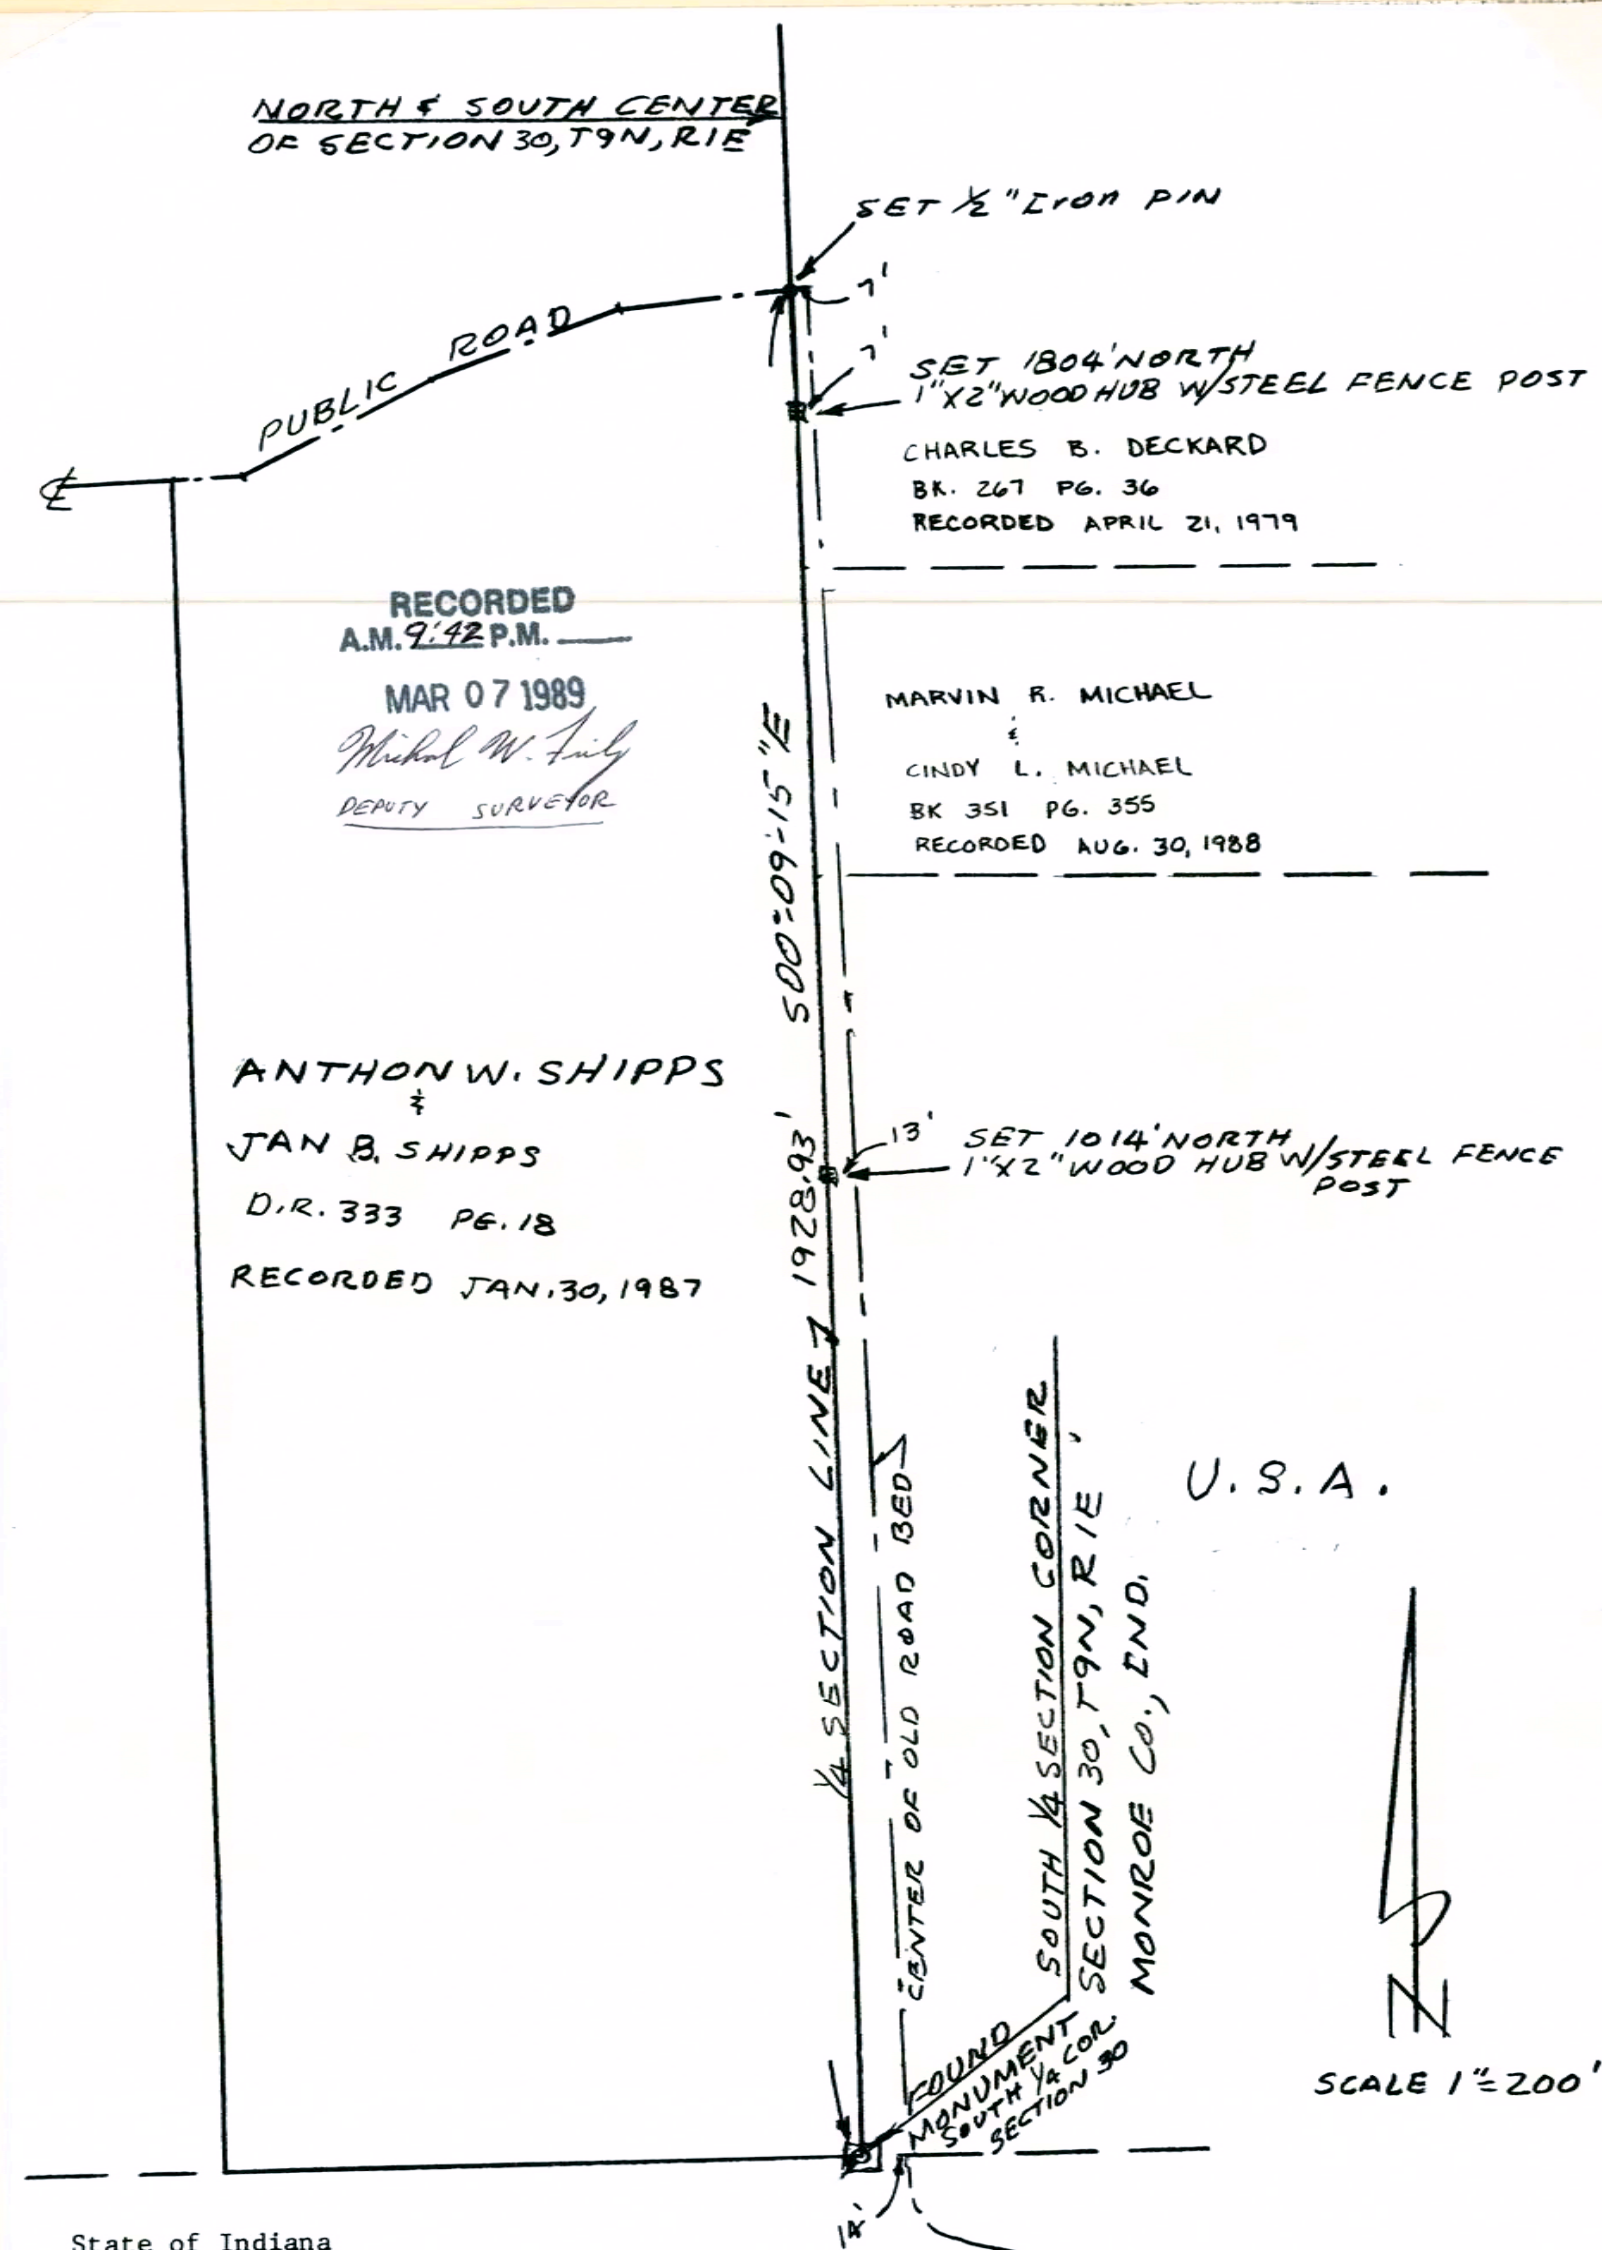 NORTH & SOUTH CENTER
OF SECTION 30, T9N, R1E
SET 1/2" Iron PIN
7'
7'
PUBLIC ROAD
SET 1804' NORTH
1"X2" WOOD HUB W/STEEL FENCE POST
CHARLES B. DECKARD
BK. 267 PG. 36
RECORDED APRIL 21, 1979
℄
RECORDED
A.M. 9:42 P.M.
MAR 07 1989
DEPUTY SURVEYOR
MARVIN R. MICHAEL
&
CINDY L. MICHAEL
BK 351 PG. 355
RECORDED AUG. 30, 1988
S00°-09'-15"E
1928.93'
1/4 SECTION LINE
ANTHON W. SHIPPS
&
JAN B. SHIPPS
D.R. 333 PG. 18
RECORDED JAN. 30, 1987
13'
SET 1014' NORTH
1"X2" WOOD HUB W/STEEL FENCE
POST
CENTER OF OLD ROAD BED
SOUTH 1/4 SECTION CORNER
SECTION 30, T9N, R1E
MONROE CO., IND.
U.S.A.
FOUND
MONUMENT
SOUTH 1/4 COR.
SECTION 30
N
SCALE 1"=200'
State of Indiana